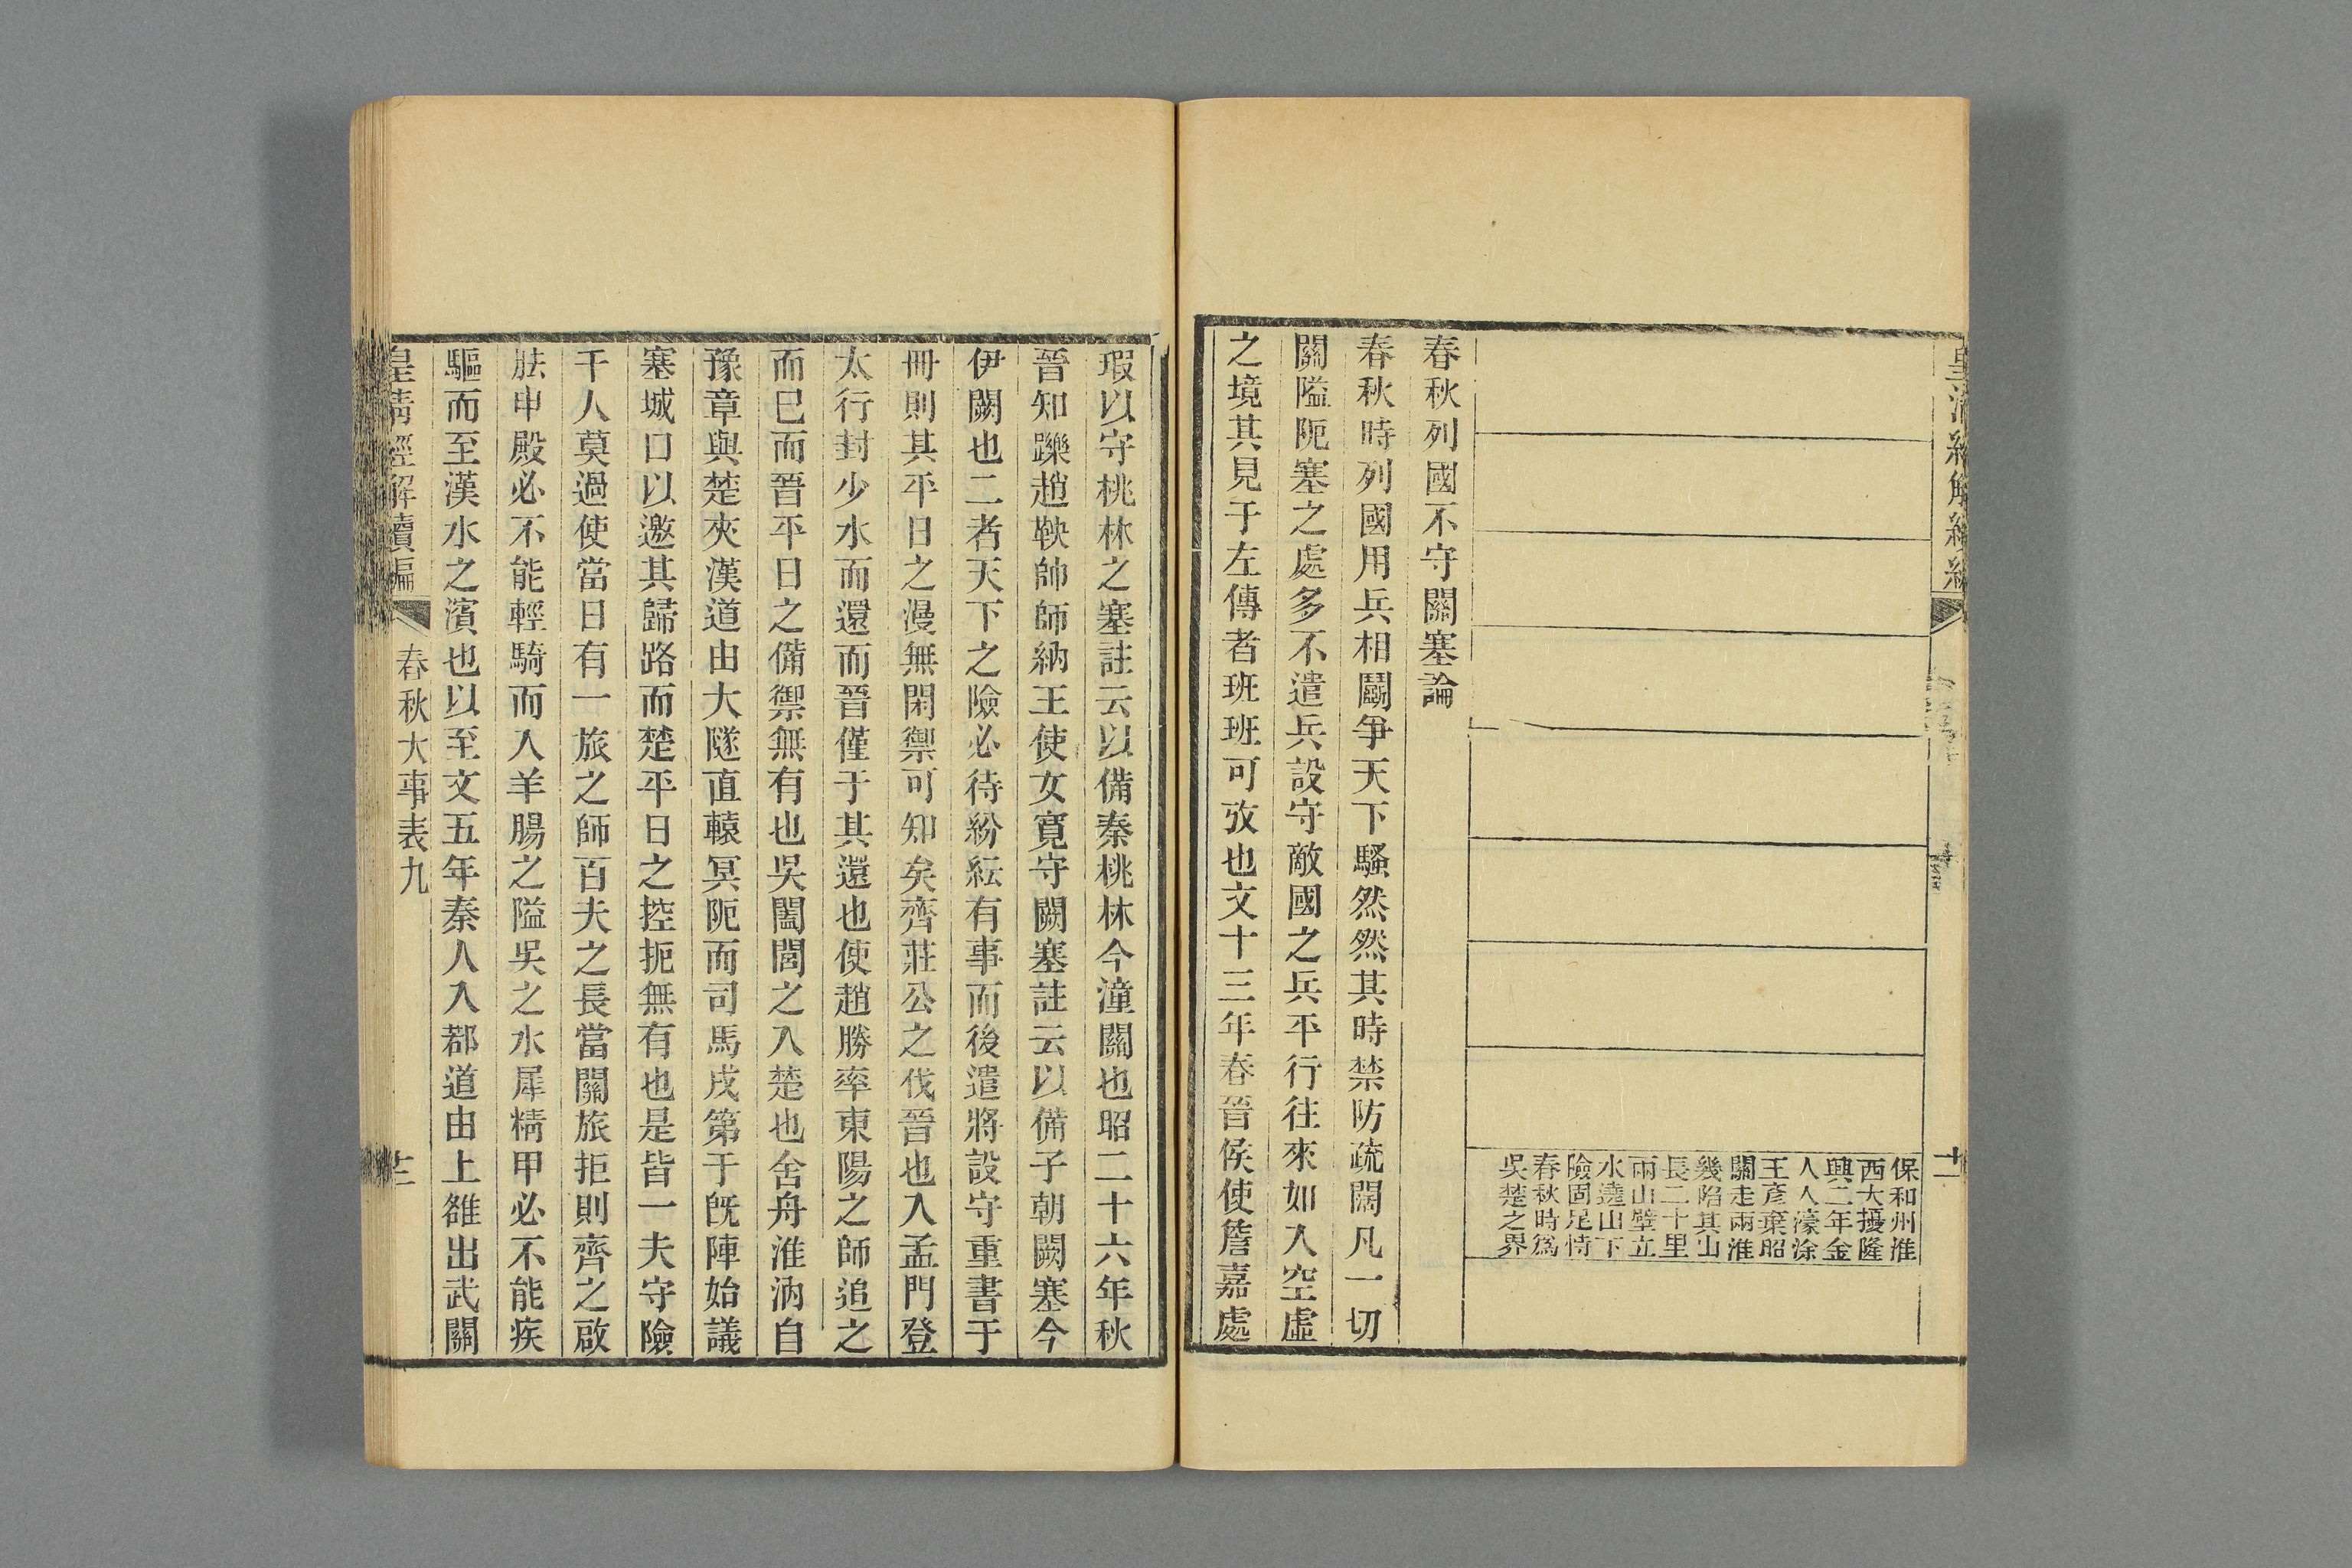 保和州淮
西大擾隆
興二年金
人人濠滁
王彥棄昭
關走兩淮
幾陷其山
長二十里
兩山壁立
水遶山下
險固足恃
春秋時爲
吳楚之界
春秋列國不守關塞論
春秋時列國用兵相鬭爭天下騷然然其時禁防疏闊凡一切
關隘阨塞之處多不遣兵設守敵國之兵平行往來如入空虛
之境其見于左傳者班班可攷也文十三年春晉侯使詹嘉處
瑕以守桃林之塞註云以備秦桃林今潼關也昭二十六年秋
晉知躒趙鞅帥師納王使女寬守闕塞註云以備子朝闕塞今
伊闕也二者天下之險必待紛紜有事而後遣將設守重書于
冊則其平日之漫無閑禦可知矣齊莊公之伐晉也入孟門登
太行封少水而還而晉僅于其還也使趙勝率東陽之師追之
而巳而晉平日之備禦無有也吳闔閭之入楚也舍舟淮汭自
豫章與楚夾漢道由大隧直轅冥阨而司馬戌第于旣陣始議
塞城口以邀其歸路而楚平日之控扼無有也是皆一夫守險
千人莫過使當日有一旅之師百夫之長當關旅拒則齊之啟
胠申殿必不能輕騎而入羊腸之隘吳之水犀精甲必不能疾
驅而至漢水之濱也以至文五年秦人入鄀道由上雒出武關
皇清經解續編 春秋大事表九